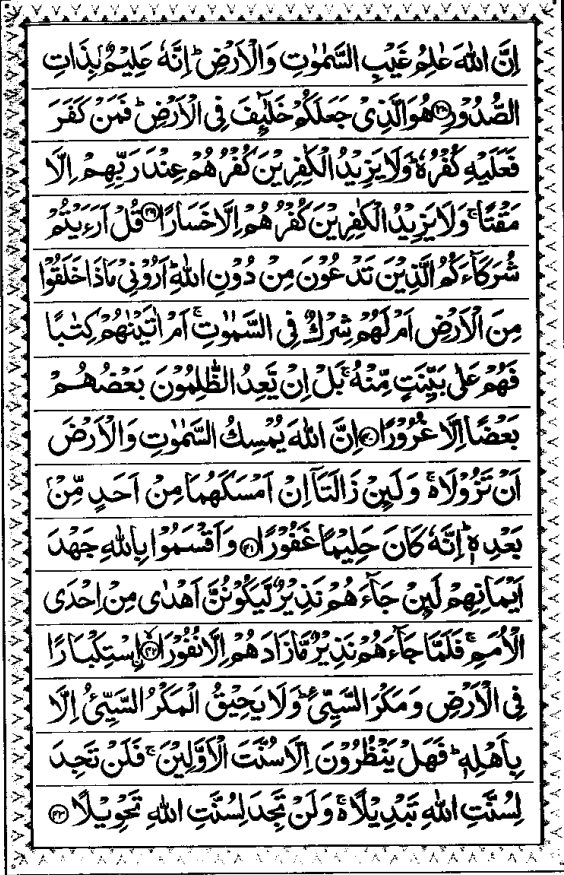 اِنَّ اللّٰهَ عٰلِمُ غَيْبِ السَّمٰوٰتِ وَالْاَرْضِ ؕ اِنَّهٗ عَلِيْمٌۢ بِذَاتِ
الصُّدُوْرِ ﴿۳۸﴾ هُوَ الَّذِىْ جَعَلَكُمْ خَلٰٓئِفَ فِى الْاَرْضِ ؕ فَمَنْ كَفَرَ
فَعَلَيْهِ كُفْرُهٗ ؕ وَلَا يَزِيْدُ الْكٰفِرِيْنَ كُفْرُهُمْ عِنْدَ رَبِّهِمْ اِلَّا
مَقْتًا ۚ وَلَا يَزِيْدُ الْكٰفِرِيْنَ كُفْرُهُمْ اِلَّا خَسَارًا ﴿۳۹﴾ قُلْ اَرَءَيْتُمْ
شُرَكَآءَكُمُ الَّذِيْنَ تَدْعُوْنَ مِنْ دُوْنِ اللّٰهِ ؕ اَرُوْنِىْ مَاذَا خَلَقُوْا
مِنَ الْاَرْضِ اَمْ لَهُمْ شِرْكٌ فِى السَّمٰوٰتِ ۚ اَمْ اٰتَيْنٰهُمْ كِتٰبًا
فَهُمْ عَلٰى بَيِّنَتٍ مِّنْهُ ۚ بَلْ اِنْ يَّعِدُ الظّٰلِمُوْنَ بَعْضُهُمْ
بَعْضًا اِلَّا غُرُوْرًا ﴿۴۰﴾ اِنَّ اللّٰهَ يُمْسِكُ السَّمٰوٰتِ وَالْاَرْضَ
اَنْ تَزُوْلَا ۚ وَلَئِنْ زَالَتَاۤ اِنْ اَمْسَكَهُمَا مِنْ اَحَدٍ مِّنْۢ
بَعْدِهٖ ؕ اِنَّهٗ كَانَ حَلِيْمًا غَفُوْرًا ﴿۴۱﴾ وَاَقْسَمُوْا بِاللّٰهِ جَهْدَ
اَيْمَانِهِمْ لَئِنْ جَآءَهُمْ نَذِيْرٌ لَّيَكُوْنُنَّ اَهْدٰى مِنْ اِحْدَى
الْاُمَمِ ۚ فَلَمَّا جَآءَهُمْ نَذِيْرٌ مَّا زَادَهُمْ اِلَّا نُفُوْرًا ﴿۴۲﴾ اۨسْتِكْبَارًا
فِى الْاَرْضِ وَمَكْرَ السَّيِّئِ ؕ وَلَا يَحِيْقُ الْمَكْرُ السَّيِّئُ اِلَّا
بِاَهْلِهٖ ؕ فَهَلْ يَنْظُرُوْنَ اِلَّا سُنَّتَ الْاَوَّلِيْنَ ۚ فَلَنْ تَجِدَ
لِسُنَّتِ اللّٰهِ تَبْدِيْلًا ۚ وَلَنْ تَجِدَ لِسُنَّتِ اللّٰهِ تَحْوِيْلًا ﴿۴۳﴾